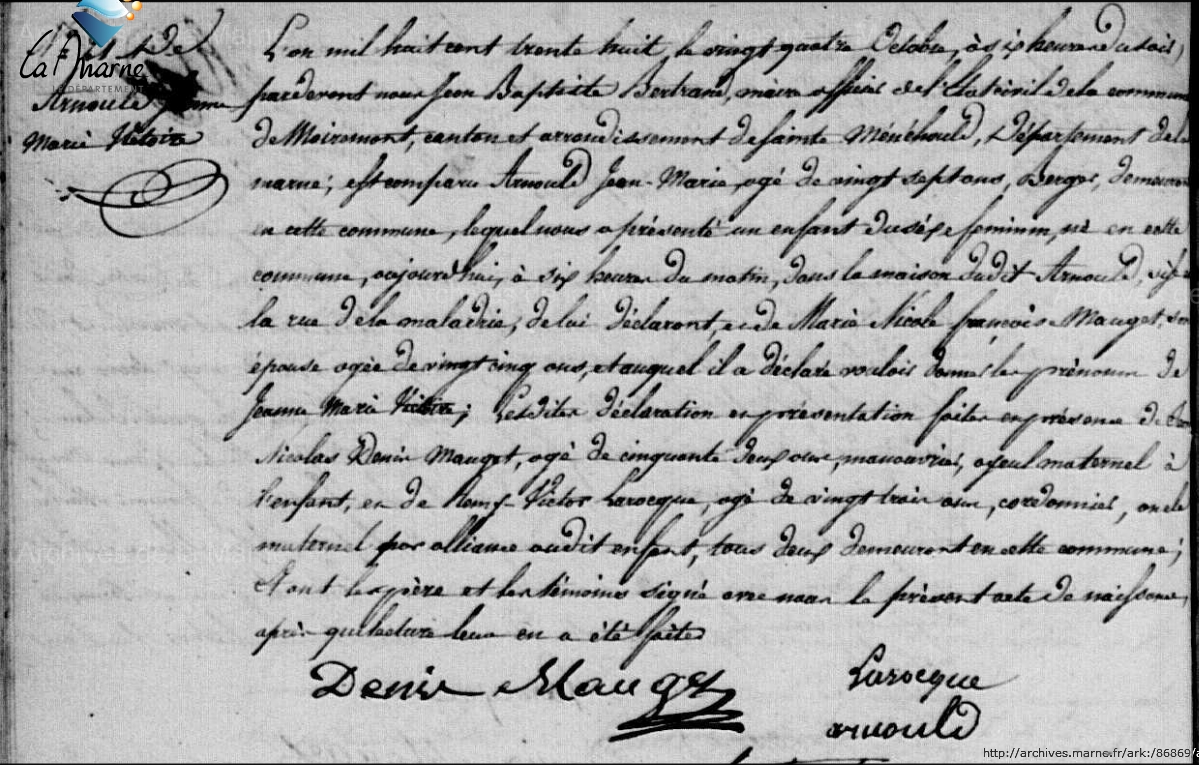 La Marne
LE DÉPARTEMENT
De
Arnould Jeanne
Marie Victoire
L'an mil huit cent trente huit, le vingt quatre Octobre, à six heures du soir,
pardevant nous Jean Baptiste Bertrand, maire officier de l'Etat civil de la commune
de Moiremont, canton et arrondissement de sainte Ménéhould, Département de la
marne; est comparu Arnould Jean-Marie, agé de vingt sept ans, Berger, demeurant
en cette commune, lequel nous a présenté un enfant du séxe feminin, né en cette
commune, aujourd'hui, à six heures du matin, dans la maison dudit Arnould, sise
la rue de la maladrie, de lui déclarant, et de Marie Nicole françoise Mauget, son
épouse agée de vingt cinq ans, et auquel il a déclaré vouloir donner les prénoms de
Jeanne Marie Victoire; Lesdites déclaration et présentation faites en présence de
Nicolas Denis Mauget, agé de cinquante deux ans, manouvrier, ayeul maternel à
l'enfant, et de Remy-Victor Larocque, agé de vingt trois ans, cordonnier, oncle
maternel par alliance audit enfant, tous deux demeurant en cette commune;
Et ont les père et les témoins signé avec nous le présent acte de naissance,
après que lecture leur en a été faite
Denis Mauget
Larocque
arnould
http://archives.marne.fr/ark:/86869/a